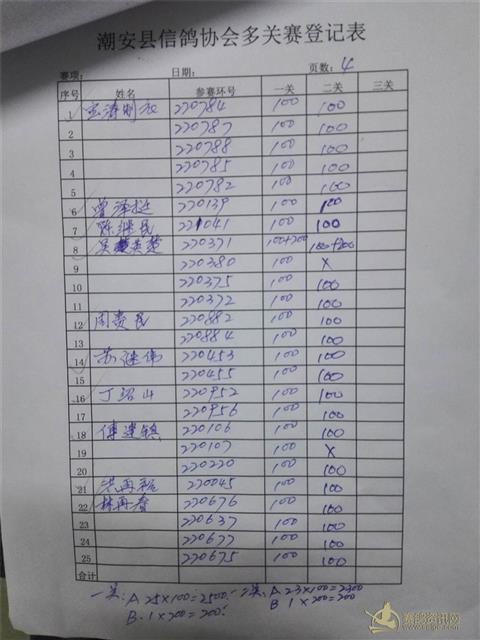 潮安县信鸽协会多关赛登记表
赛项: 日期: 页数: 4
序号 姓名 参赛环号 一关 二关 三关
1 220784 100 100
2 220787 100 100
3 220788 100 100
4 220785 100 100
5 220782 100 100
6 曾泽挺 220139 100 100
7 陈继民 221041 100 100
8 220371 100+200 100+200
9 220380 100 X
10 220375 100 100
11 220372 100 100
12 周贵民 220882 100 100
13 220884 100 100
14 苏继伟 220453 100 100
15 220455 100 100
16 丁绍山 220952 100 100
17 220956 100 100
18 傅建镇 220106 100 100
19 220107 100 X
20 220220 100 100
21 洪再 220045 100 100
22 林再春 220676 100 100
23 220637 100 100
24 220677 100 100
25 220675 100 100
合计
一关: A 25×100=2500. 二关: A 23×100=2300
B. 1×200=200. B 1×200=200
赛鸽资讯网